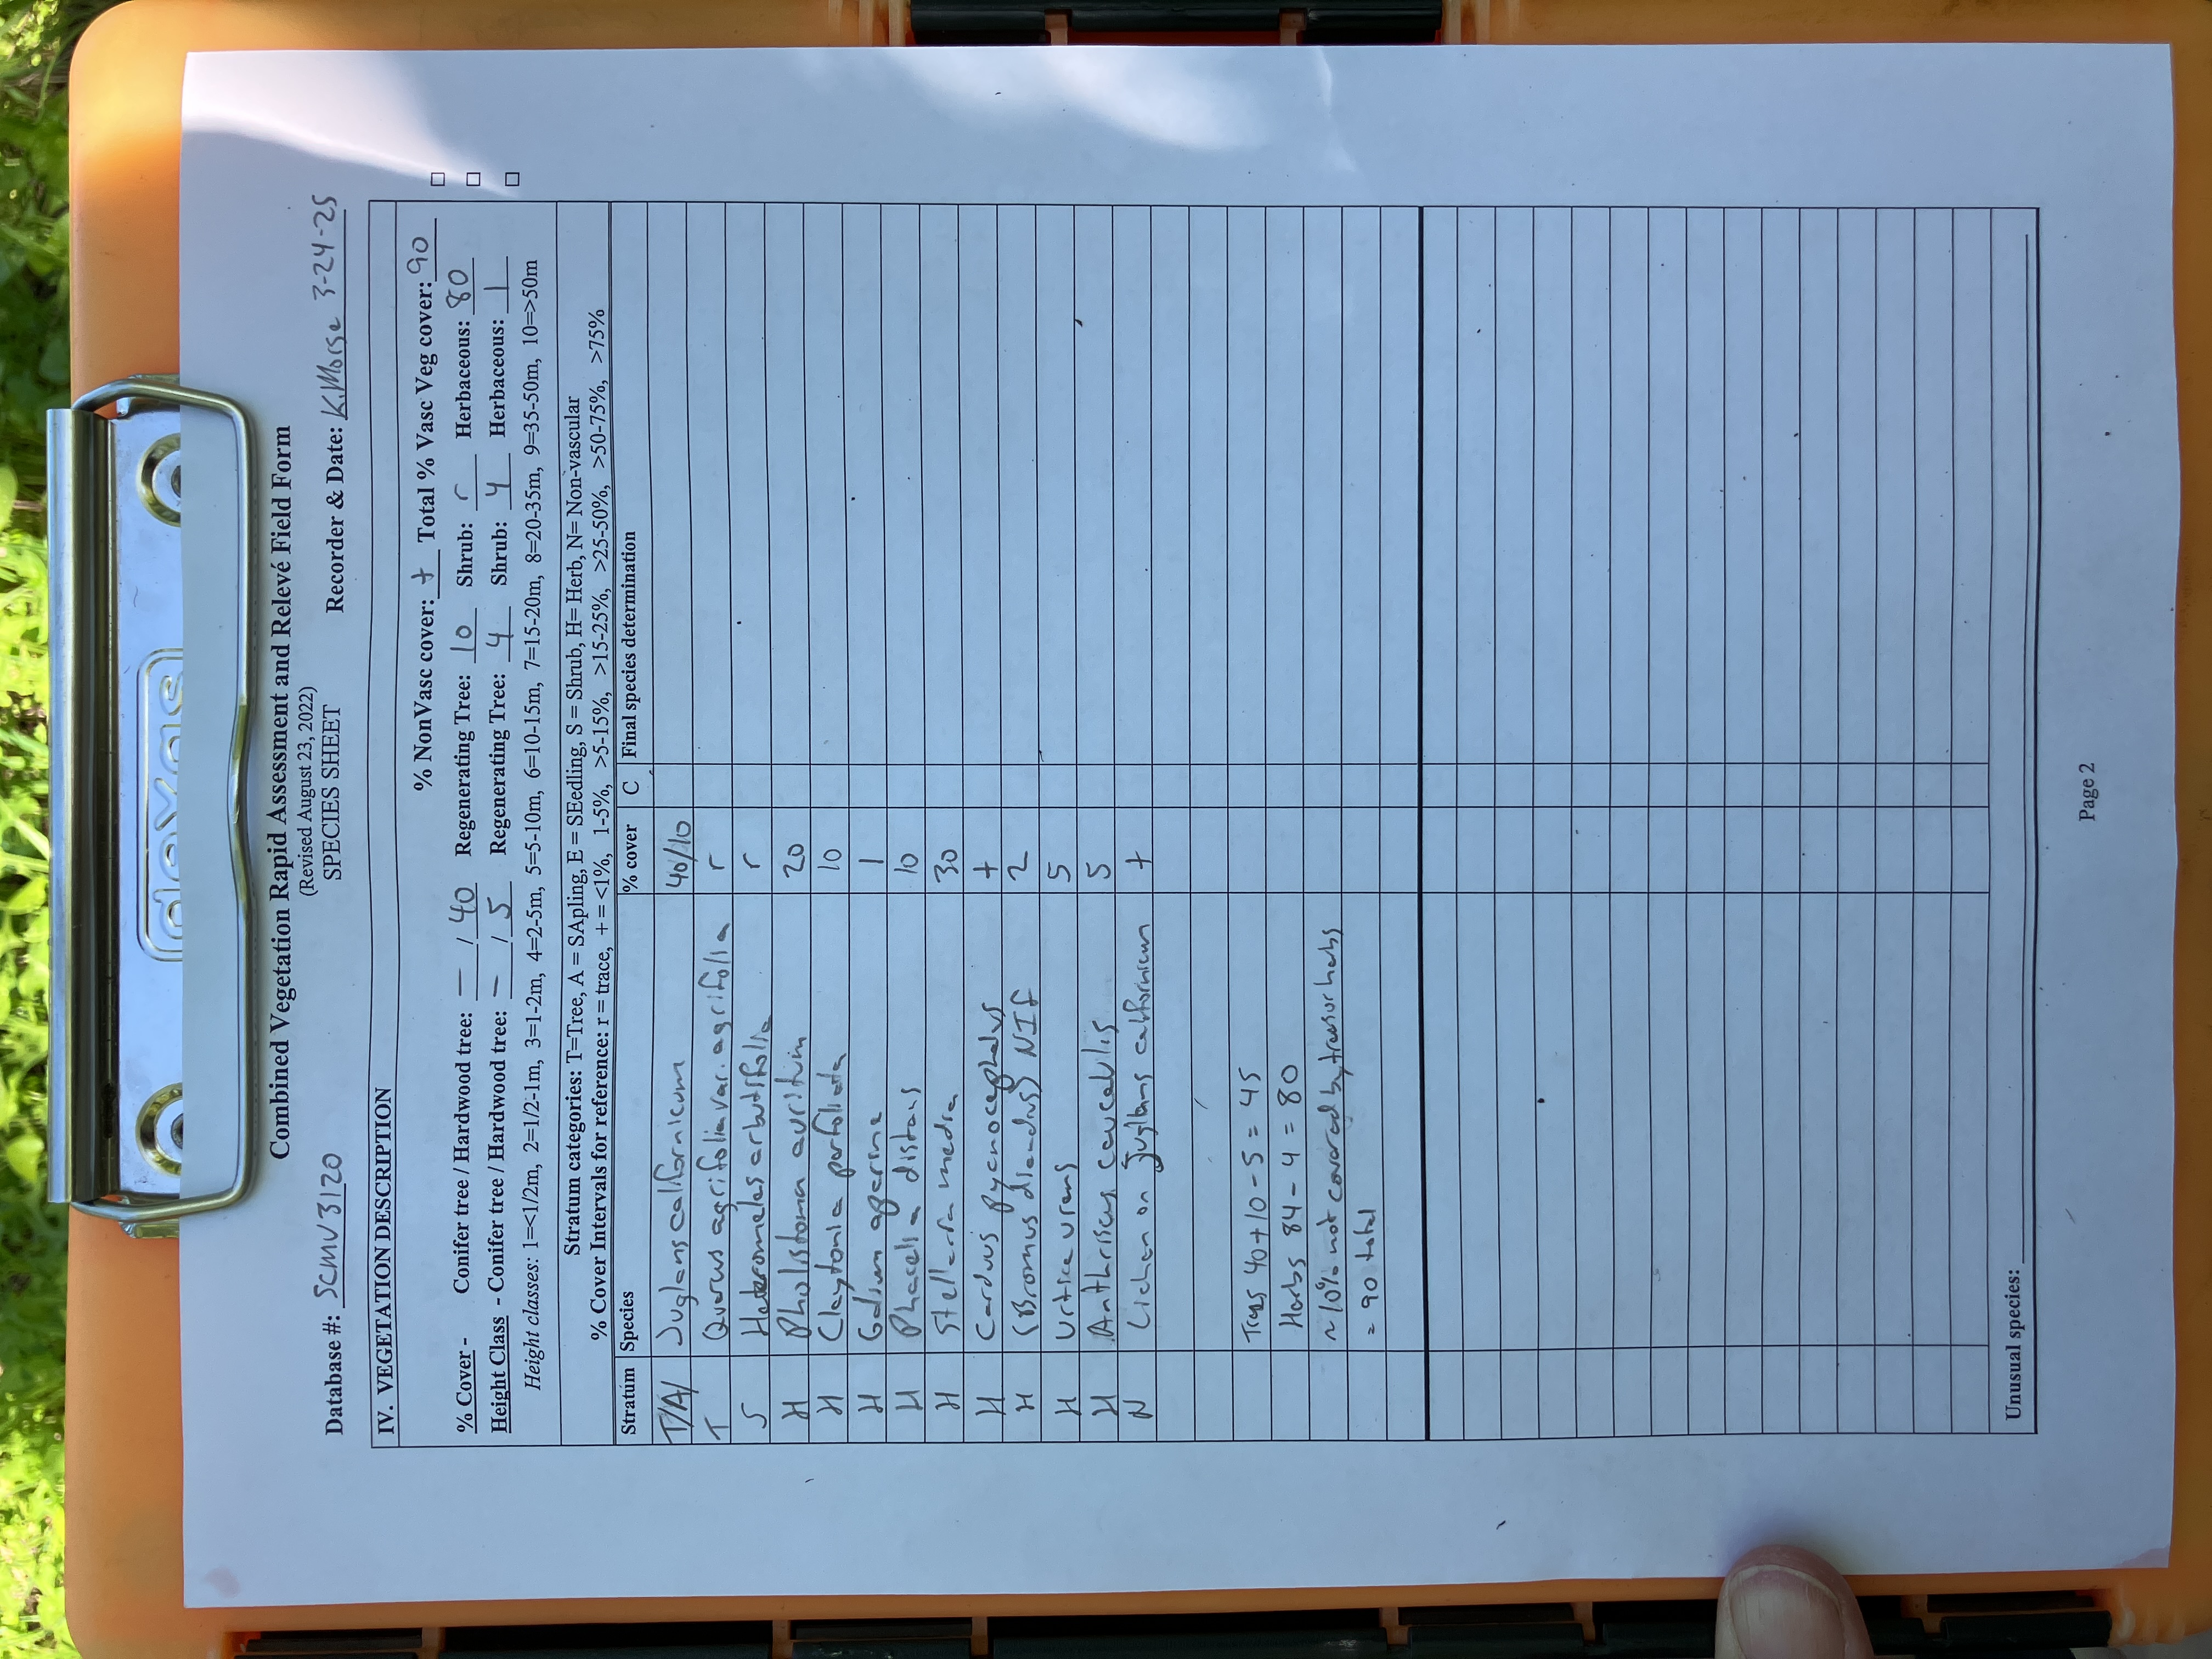 dexas
Combined Vegetation Rapid Assessment and Relevé Field Form
(Revised August 23, 2022)
SPECIES SHEET
Database #: SCMV3120 Recorder & Date: K.Morse 3-24-25
IV. VEGETATION DESCRIPTION
% NonVasc cover: + Total % Vasc Veg cover: 90
% Cover - Conifer tree / Hardwood tree: — / 40 Regenerating Tree: 10 Shrub: r Herbaceous: 80
Height Class - Conifer tree / Hardwood tree: — / 5 Regenerating Tree: 4 Shrub: 4 Herbaceous: 1
Height classes: 1=<1/2m, 2=1/2-1m, 3=1-2m, 4=2-5m, 5=5-10m, 6=10-15m, 7=15-20m, 8=20-35m, 9=35-50m, 10=>50m
Stratum categories: T=Tree, A = SApling, E = SEedling, S = Shrub, H= Herb, N= Non-vascular
% Cover Intervals for reference: r = trace, + = <1%, 1-5%, >5-15%, >15-25%, >25-50%, >50-75%, >75%
Stratum Species % cover C Final species determination
T/A/ Juglans californicum 40/10
T Quercus agrifolia var. agrifolia r
S Heteromeles arbutifolia r
H Pholistoma auritum 20
H Claytonia perfoliata 10
H Galium aparine 1
H Phacelia distans 10
H Stellaria media 30
H Carduus pycnocephalus +
H (Bromus diandrus) NIF 2
H Urtica urens 5
H Anthriscus caucalis 5
N Lichen on Juglans californicum +
Trees 40+10-5 = 45
Herbs 84-4 = 80
~10% not covered by trees or herbs
= 90 total
Unusual species:
Page 2